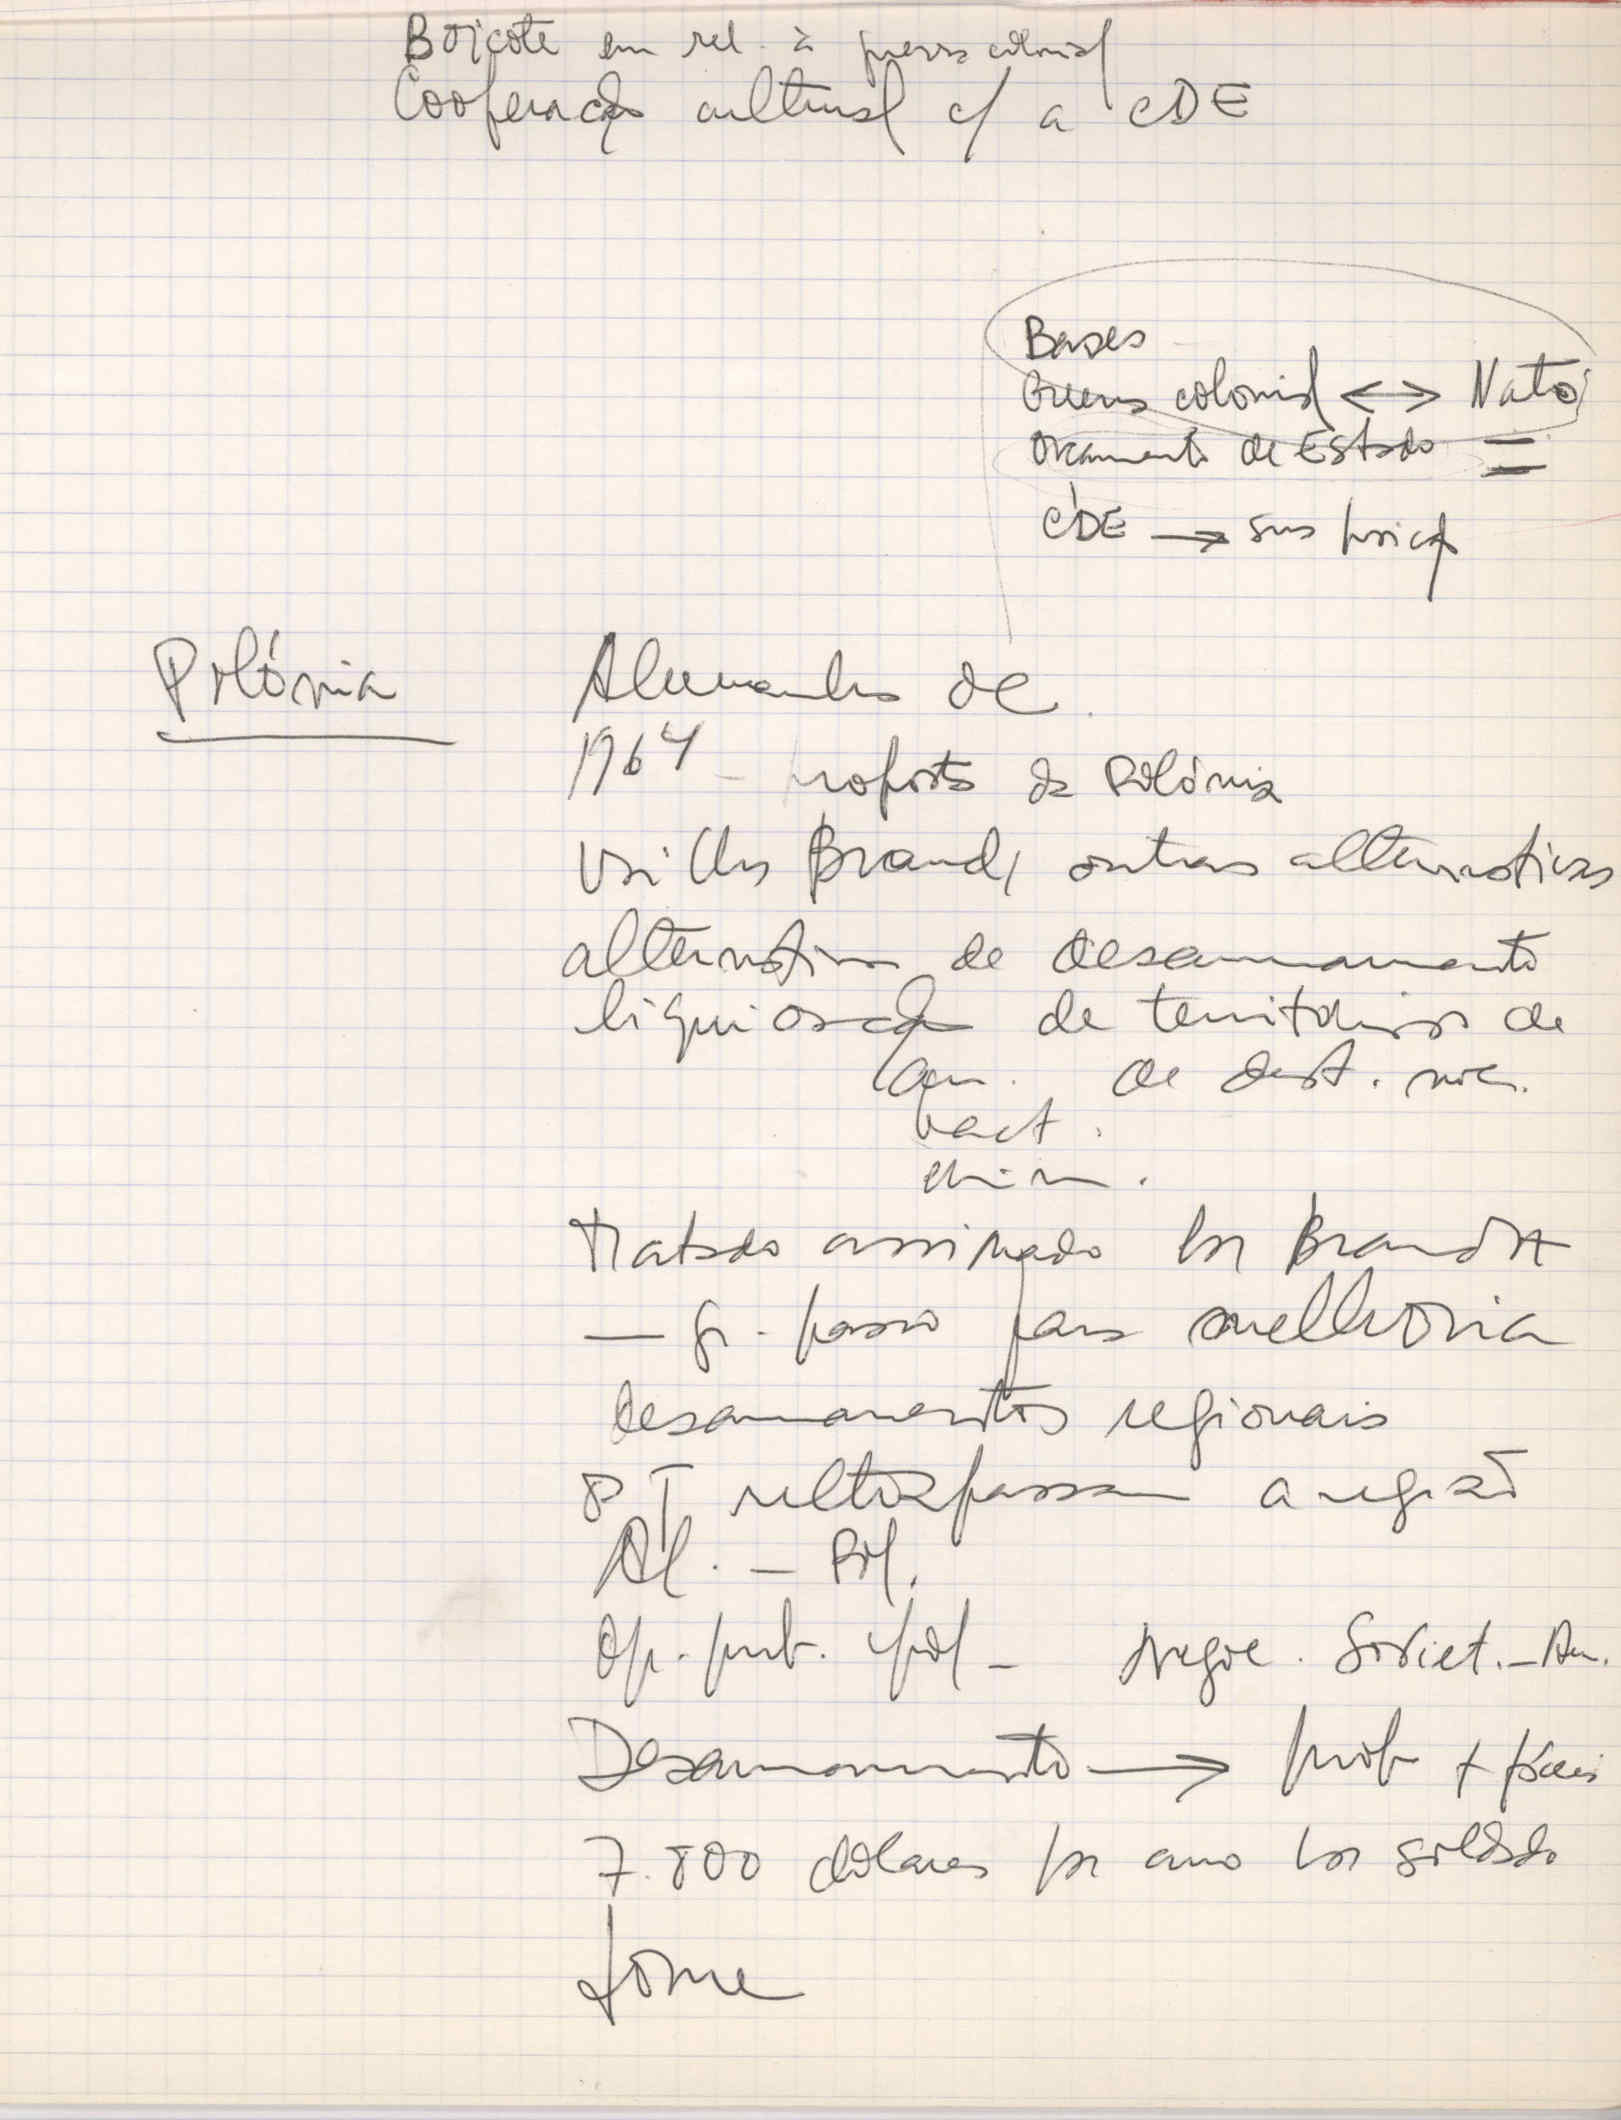 Boicote em rel. à guerra colonial
Cooperação cultural c/ a CDE
Bases
Guerra colonial <-> Nato
Orçamento de Estado =
CDE → sua posição
Polónia
Alemanha de
1964 - proposta da Polónia
Willy Brand, outras alternativas
alternativa de desarmamento
liquidação de territórios de
arm. de dest. nuc.
bact.
chim.
Tratado assinado por Brandt
— gr. passo para melhoria
desarmamentos regionais
ultrapassam a região
Al. - Pol.
Op. pub. pol - negoc. Soviet. - Am.
Desarmamento → prob + países
7.800 dólares por ano por soldado
fome